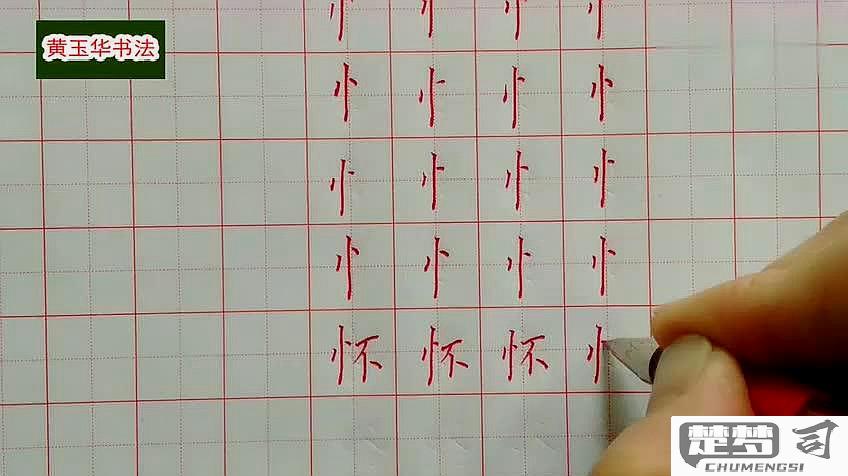 黄玉华书法
忄 忄 忄 忄
忄 忄 忄 忄
忄 忄 忄 忄
忄 忄 忄 忄
怀 怀 怀 忄
楚梦司
CHUMENGSI